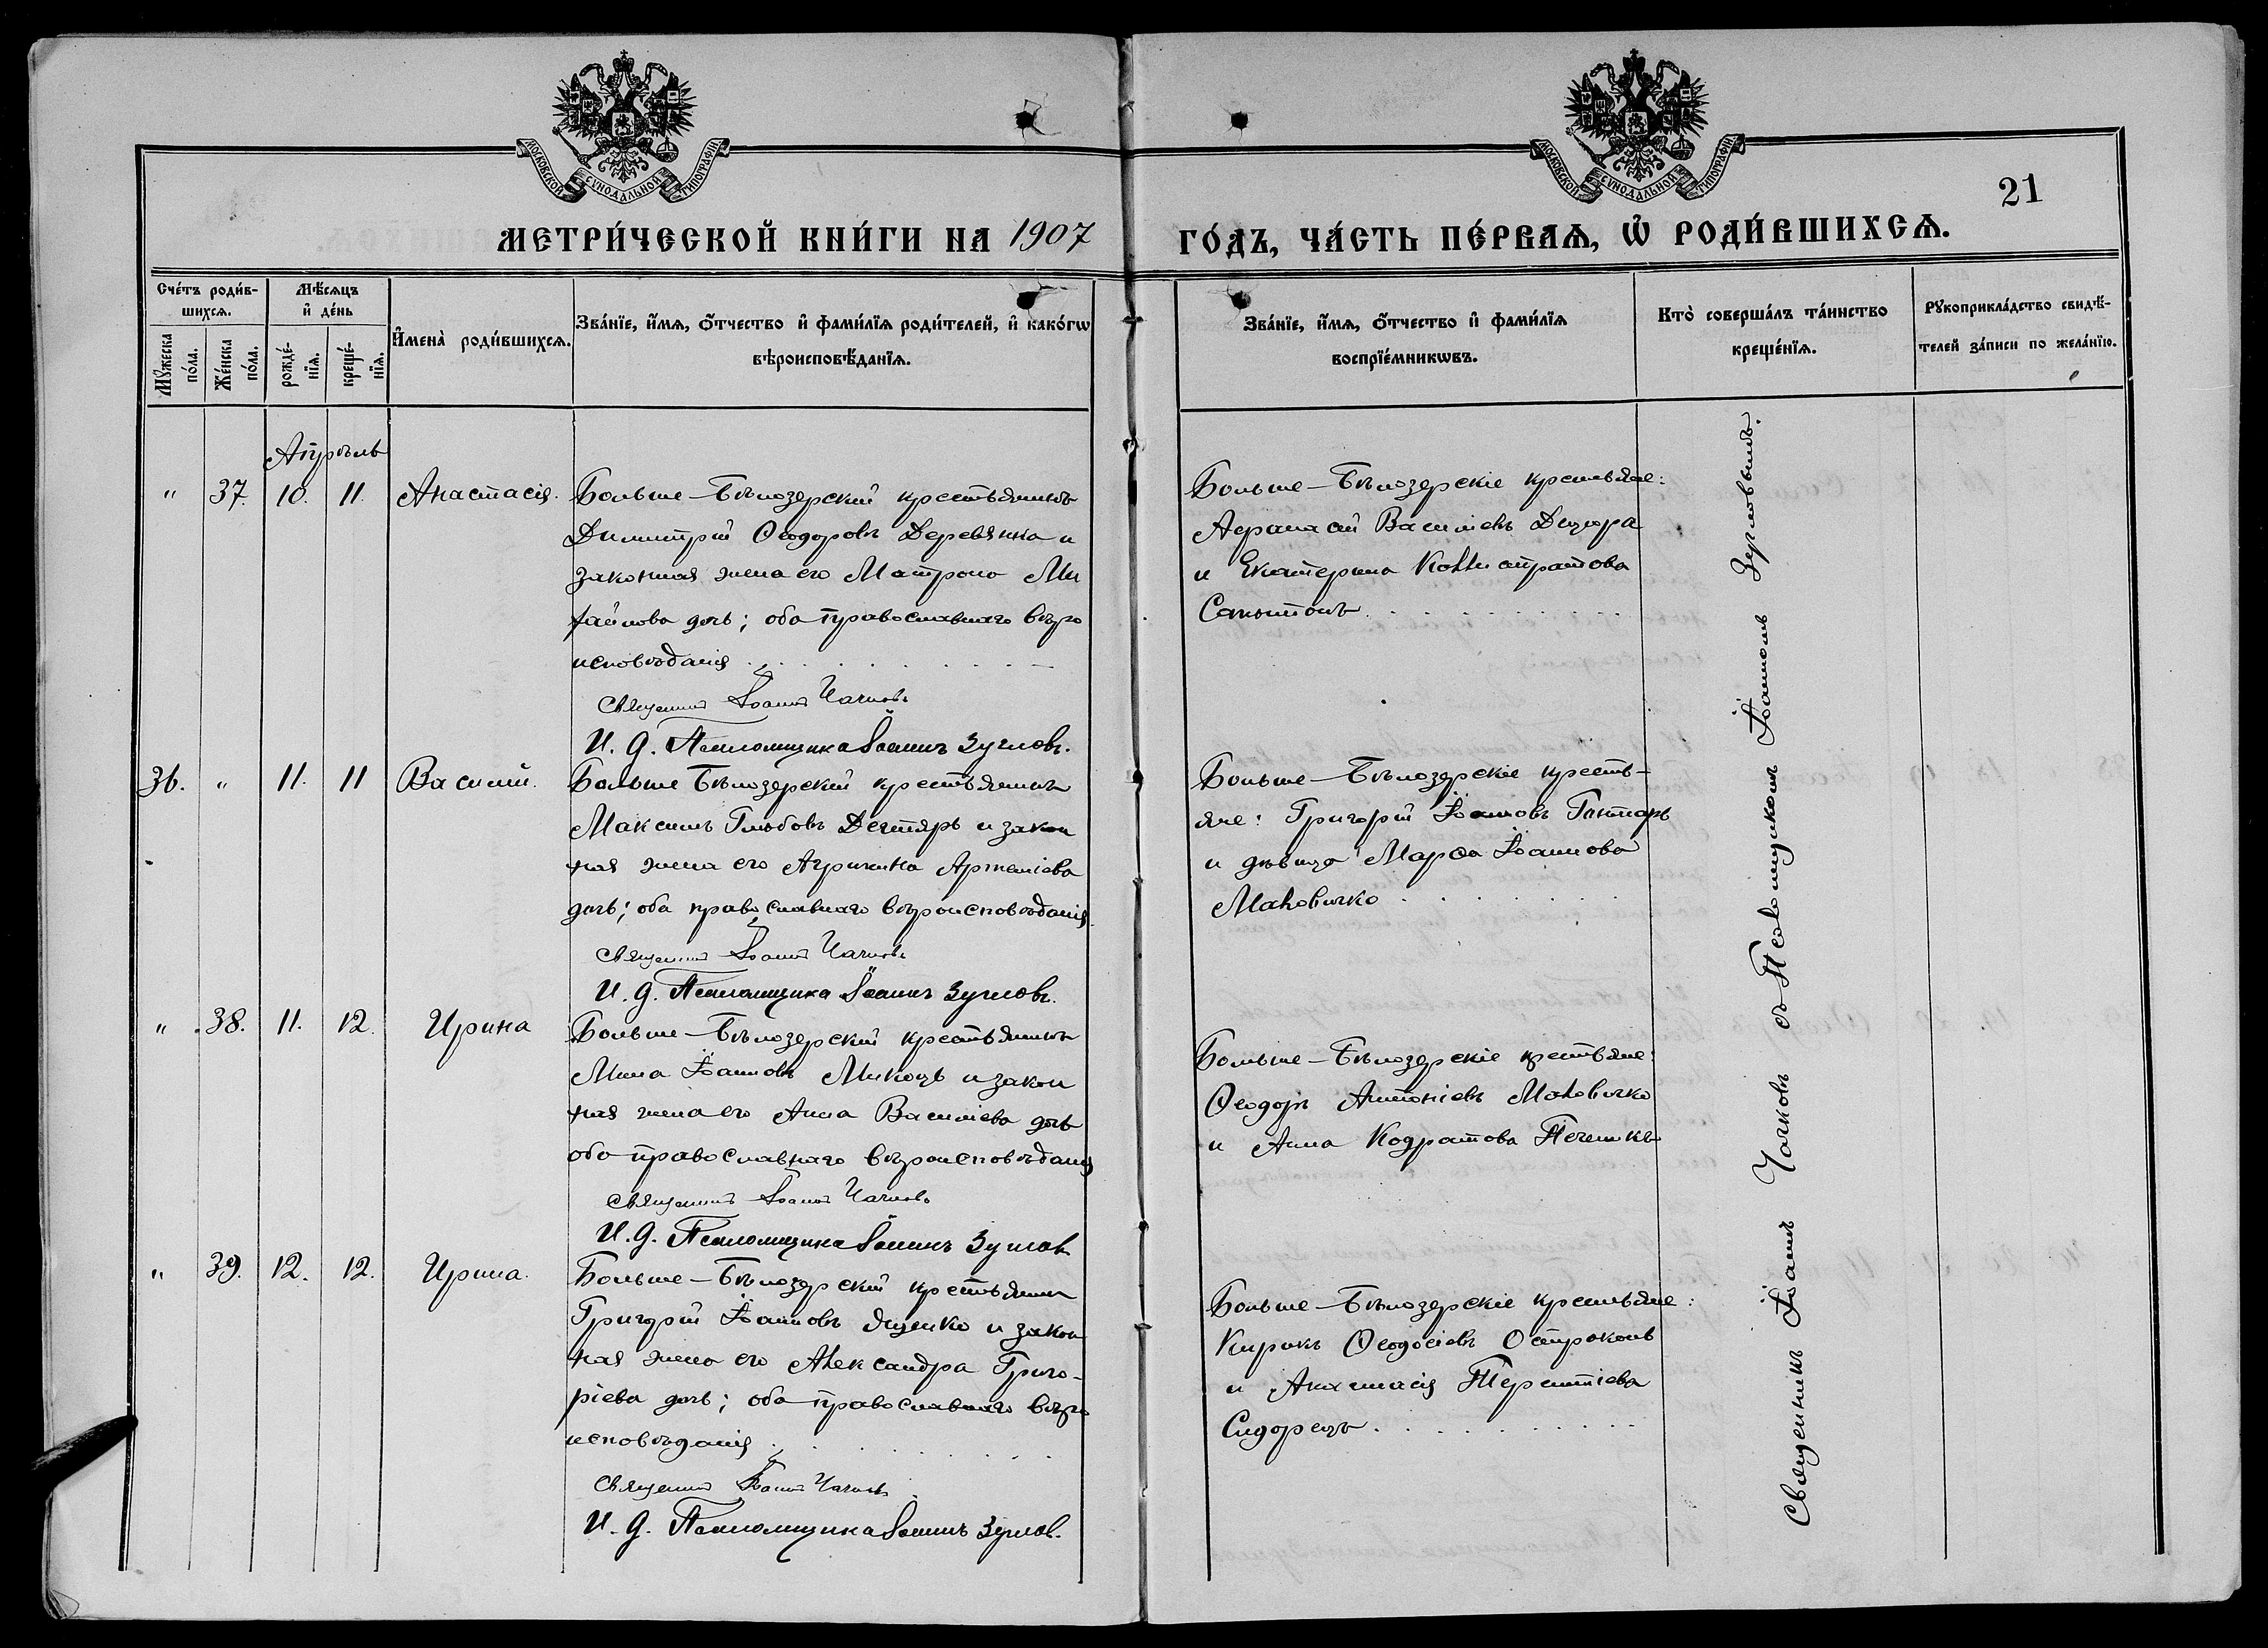 МОСКОВСКОЙ СѴНОДАЛЬНОЙ ТИПОГРАФІИ
МОСКОВСКОЙ СѴНОДАЛЬНОЙ ТИПОГРАФІИ
21
МЕТРИ́ЧЕСКОЙ КНИ́ГИ НА 1907 ГО́ДЪ, ЧА́СТЬ ПЕ́РВАѦ, Ѡ҆ РОДИ́ВШИХСѦ.
Сче́тъ роди́в-
шихсѧ.
Мѣ́сѧцъ
и҆ де́нь
Мꙋ́жеска по́ла.
Же́нска по́ла.
рожде́-нїѧ.
креще́-нїѧ.
И҆мена̀ роди́вшихсѧ.
Зва́нїе, и҆́мѧ, ѻ҆́тчество и҆ фами́лїѧ роди́телей, и҆ како́гѡ
вѣроисповѣ́данїѧ.
Зва́нїе, и҆́мѧ, ѻ҆́тчество и҆ фами́лїѧ
воспрїе́мникѡвъ.
Кто̀ соверша́лъ та́инство
креще́нїѧ.
Рꙋкоприкла́дство свидѣ́-
телей за́писи по жела́нїю.
Апрѣль
" 37. 10. 11. Анастасія.
Больше-Бѣлозерскій крестьянинъ
Димитрій Ѳеодоровъ Деревянка и
законная жена его Матрона Ми
хайлова дочь; оба православнаго вѣро
исповѣданія
Священникъ Іоаннъ Чачковъ
И. д. Псаломщика Іоаннъ Зугловъ.
Больше-Бѣлозерскіе крестьяне:
Аѳанасій Василіевъ Дицюра
и Екатерина Каллистратова
36. " 11. 11 Василій.
Больше Бѣлозерскій крестьянинъ
Максимъ Глѣбовъ Дегтярь и закон
ная жена его Агрипина Артеміева
дочь; оба православнаго вѣроисповѣданія.
Священникъ Іоаннъ Чачковъ
И. д. Псаломщика Іоаннъ Зугловъ.
Больше-Бѣлозерскіе кресть-
яне: Григорій Іоанновъ
и дѣвица Марѳа Іоаннова
Маловичко
" 38. 11. 12. Ирина
Больше-Бѣлозерскій крестьянинъ
Мина Іоанновъ и закон
ная жена его Анна Василіева дочь
оба православнаго вѣроисповѣданія
Священникъ Іоаннъ Чачковъ
И. д. Псаломщика Іоаннъ Зугловъ
Больше-Бѣлозерскіе крестьяне:
Ѳеодоръ Антоніевъ Маловичко
и Анна Кодратова
" 39. 12. 12. Ирина.
Больше-Бѣлозерскій крестьянинъ
Григорій Іоанновъ Яценко и закон
ная жена его Александра Григо-
ріева дочь; оба православнаго вѣро
исповѣданія
Священникъ Іоаннъ Чачковъ
И. д. Псаломщика Іоаннъ Зуглов.
Больше-Бѣлозерскіе крестьяне:
Кирикъ Ѳеодосіевъ
и Анастасія Терентіева
Сидорецъ
Священникъ Іоаннъ Чачковъ съ Псаломщикомъ Іоанномъ Зугловымъ.